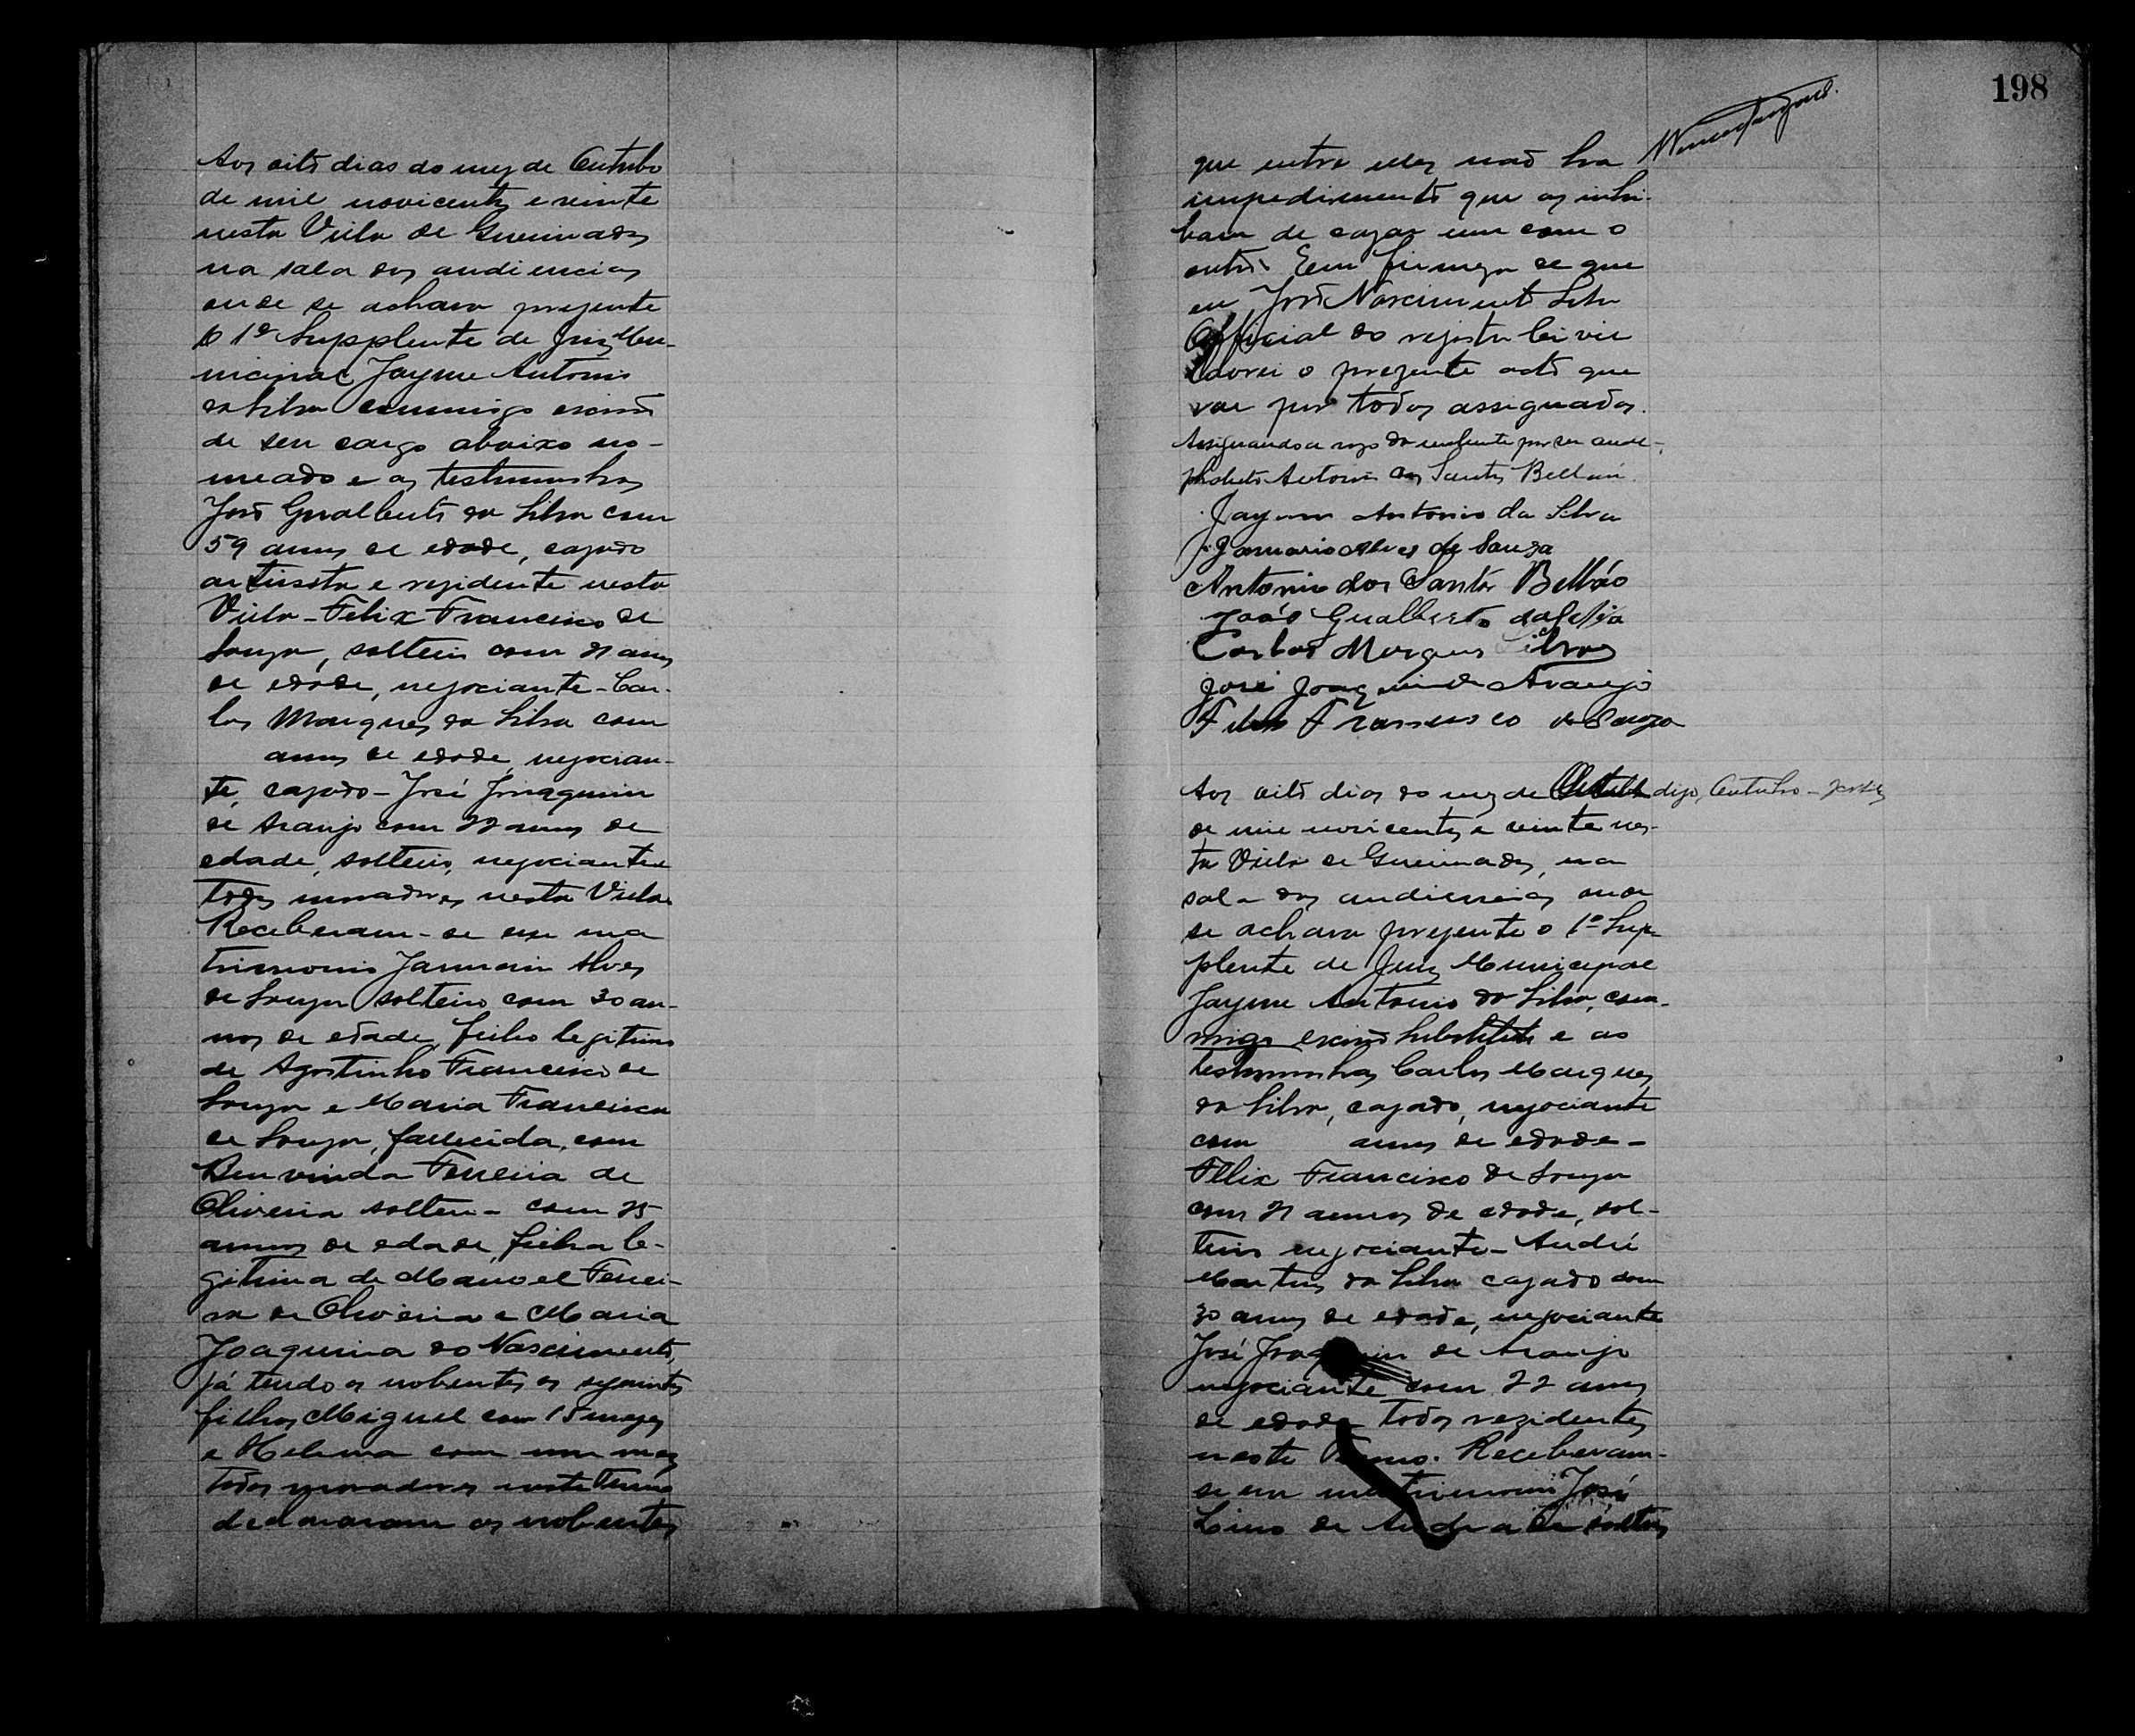 Aos oito dias do mez de Outubro
de mil novicentos e vinte
nesta Villa de Queimadas
na sala das audiencias
onde se achava prezente
o 1º Supplente de Juiz Mu-
nicipal Jayme Antonio
da Silva commigo escrivão
de seu cargo abaixo no-
meado e as testemunhas
João Gualberto da Silva com
59 annos de edade, cazado
artista e rezidente nesta
Villa - Felix Francisco de
Souza, solteiro com 21 annos
de edade, negociante - Car-
los Marques da Silva com
annos de edade, negocian-
te, cazado - José Joaquim
de Araujo com 22 annos de
edade, solteiro, negociante
todos moradores nesta Villa.
Receberam-se em ma
trimonio Januario Alves
de Souza solteiro com 30 an-
nos de edade, filho legitimo
de Agostinho Francisco de
Souza e Maria Francisca
de Souza, fallecida, com
Bemvinda Ferreira de
Oliveira solteira com 25
annos de edade, filha le-
gitima de Manoel Ferrei-
ra de Oliveira e Maria
Joaquina do Nascimento,
já tendo os nubentes os seguintes
filhos Miguel com 15 mezes
e Helena com um mez
todos moradores neste Termo
declararam os nubentes
198
que entre elles não ha
impedimento que os inhi-
bam de cazar um com o
outro. E em firmeza de que
eu José Nascimento Silva
Official do registro Civil
lavrei o prezente acto que
vae por todos assignados.
Assignando a rogo da nubente por ser anal-
phabeta Antonio dos Santos Bellão.
Jayme Antonio da Silva
Januario Alves de Souza
Antonio dos Santos Bellão
João Gualberto da Silva
Carlos Marques Silva
José Joaquim de Araujo
Felix Francisco de Souza
Aos oito dias do mez de digo, Outubro
de mil novicentos e vinte nes-
ta Villa de Queimadas, na
sala das audiencias onde
se achava prezente o 1º Sup-
plente de Juiz Municipal
Jayme Antonio da Silva, com-
migo escrivão substituto e as
testemunhas Carlos Marques
da Silva, cazado, negociante
com annos de edade -
Felix Francisco de Souza
com 21 annos de edade, sol-
teiro negociante - André
Martins da Silva cazado com
30 annos de edade, negociante
José Joaquim de Araujo
negociante com 22 annos
de edade todos rezidentes
neste Termo. Receberam-
se em matrimonio José
Lino de Andrade solteiro